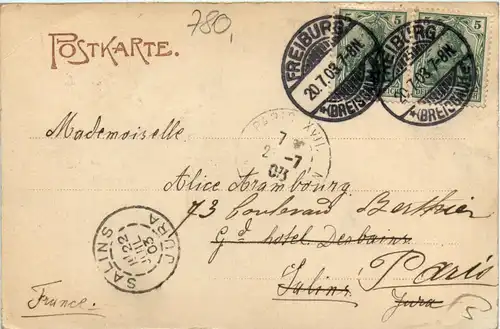 780,
POSTKARTE.
5 5
FREIBURG
20.7.03.7-8N.
*(BREISGAU)*
FREIBURG
7-8N.
*(BREISGAU)*
Mademoiselle
PARIS XVII
7
-7
03
Alice Arambourg
73 Boulevard Berthier
Gd hotel Desbains
Salins Paris
Jura
SALINS
22
JUIL
03
JURA
France.
5